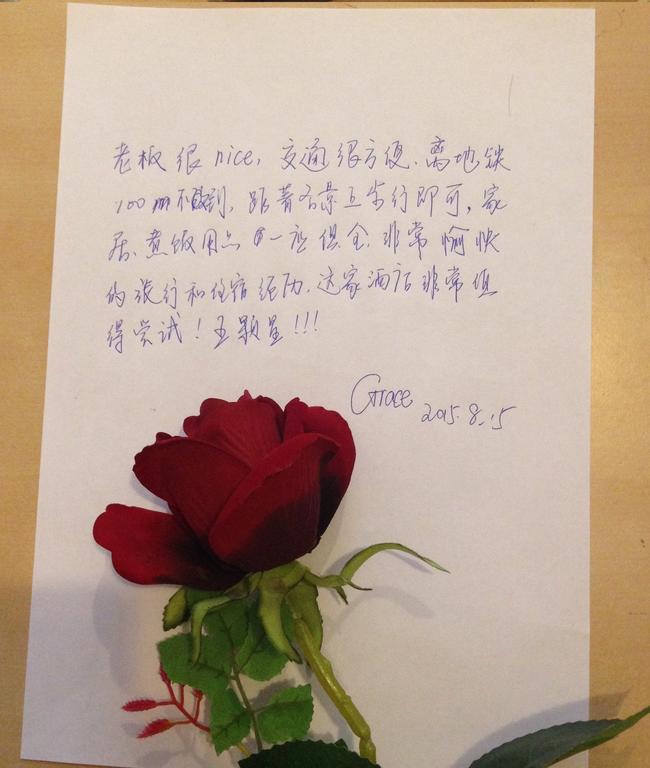 老板很nice，交通很方便，离地铁
100m不到，距着名景点步行即可，家
居、煮饭用品一应俱全，非常愉快
的旅行和住宿经历，这家酒店非常值
得尝试！五颗星！！！
Grace
2015.8.15